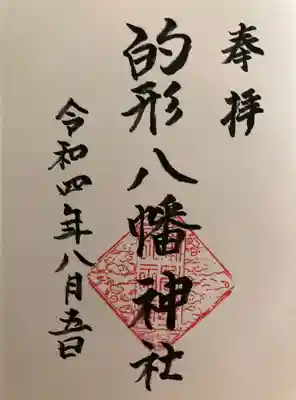 奉拝
的形八幡神社
令和四年八月吾日